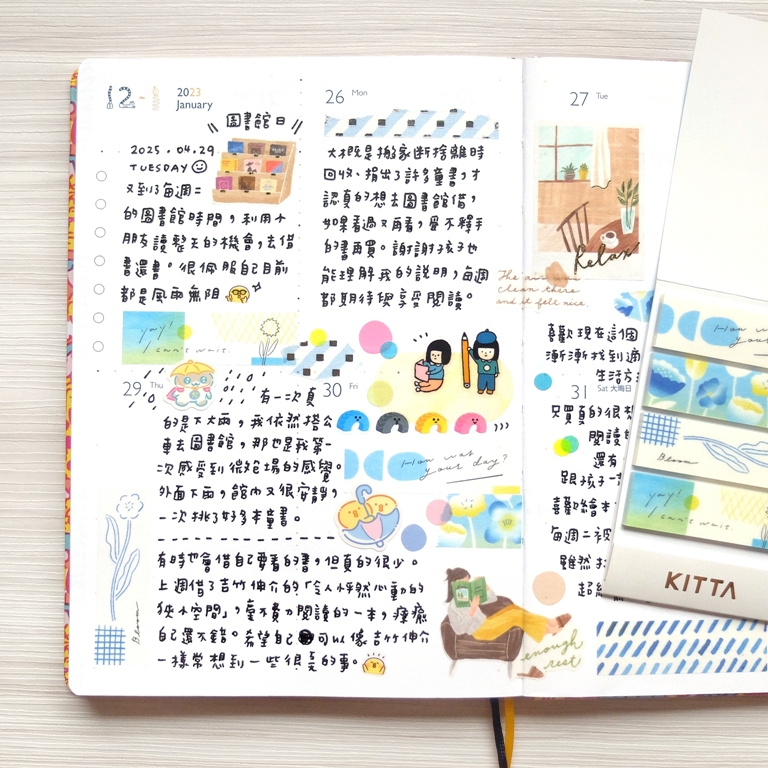 12-1
2023
January
圖書館日
2025.04.29
TUESDAY
又到了每週二
的圖書館時間,利用小
朋友讀整天的機會,去借
書還書。很佩服自己目前
都是風雨無阻
yay!
I can't wait.
26 Mon
大概是搬家斷捨離時
回收、捐出了許多童書,才
認真的想去圖書館借,
如果看過又再看,愛不釋手
的書再買。謝謝孩子也
能理解我的說明,每週
都期待後享受閱讀。
27 Tue
Relax
The air was
clean there
and it felt nice.
29 Thu
有一次真
的是下大雨,我依然搭公
車去圖書館,那也是我第一
次感受到從容場的感覺。
外面下雨,館內又很安靜,
一次挑了好多本童書。
有時也會借自己要看的書,但真的很少。
上週借了吉竹伸介的「令人怦然心動的
狹小空間」,毫不費力閱讀的一本,療癒
自己還不錯。希望自己可以像吉竹伸介
一樣常想到一些很亮的事。
Bloom
30 Fri
How was
your day?
enough
rest
喜歡現在這個
漸漸找到適
生活方
31 Sat 大晦日
只買真的很想
閱讀
還有
跟孩子一
喜歡繪本
每週二被
雖然
超
How was
your
Bloom
yay!
I can't wait.
KITTA